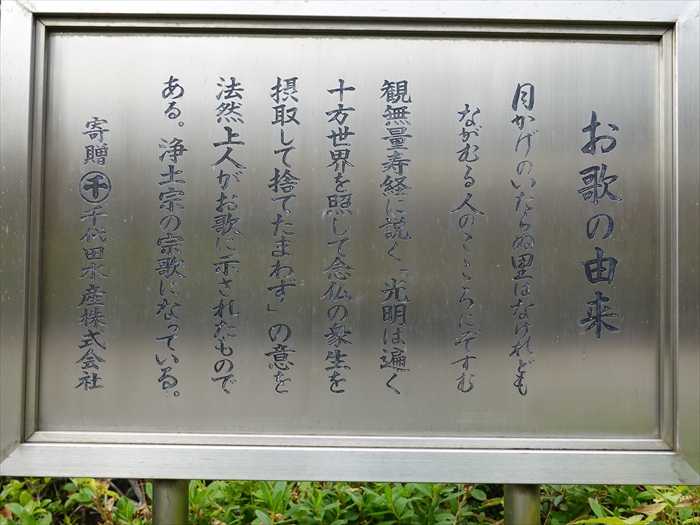 お歌の由来
月かげのいたらぬ里はなけれども
ながむる人のこゝろにぞすむ
観無量寿経に説く「光明は遍く
十方世界を照して念仏の衆生を
摂取して捨てたまわず」の意を
法然上人がお歌に示されたもので
ある。浄土宗の宗歌になっている。
寄贈 千 千代田水産株式会社